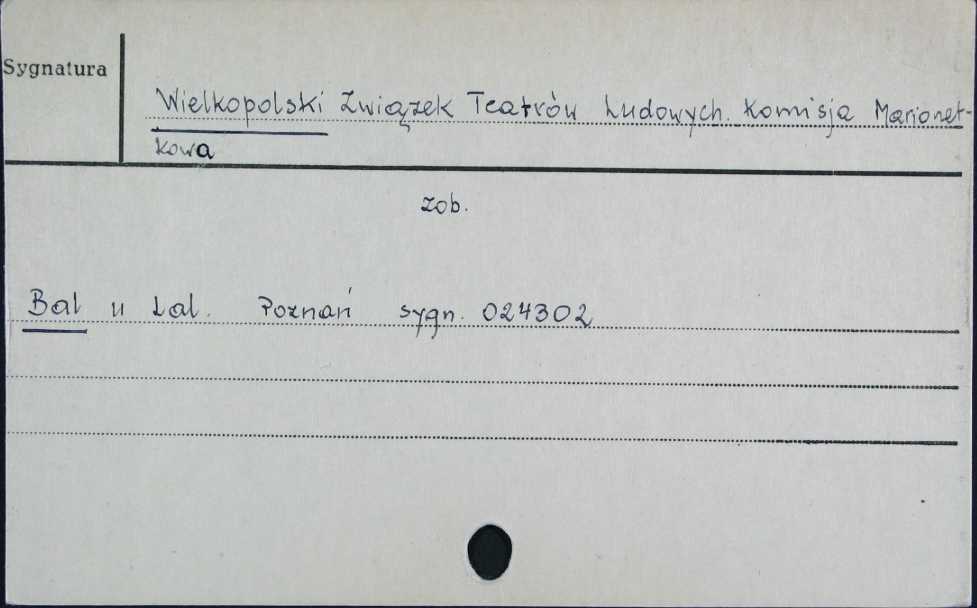 Sygnatura
Wielkopolski Związek Teatrów Ludowych. Komisja Marionet-
kowa
zob.
Bal u Lal. Poznań sygn. 024302